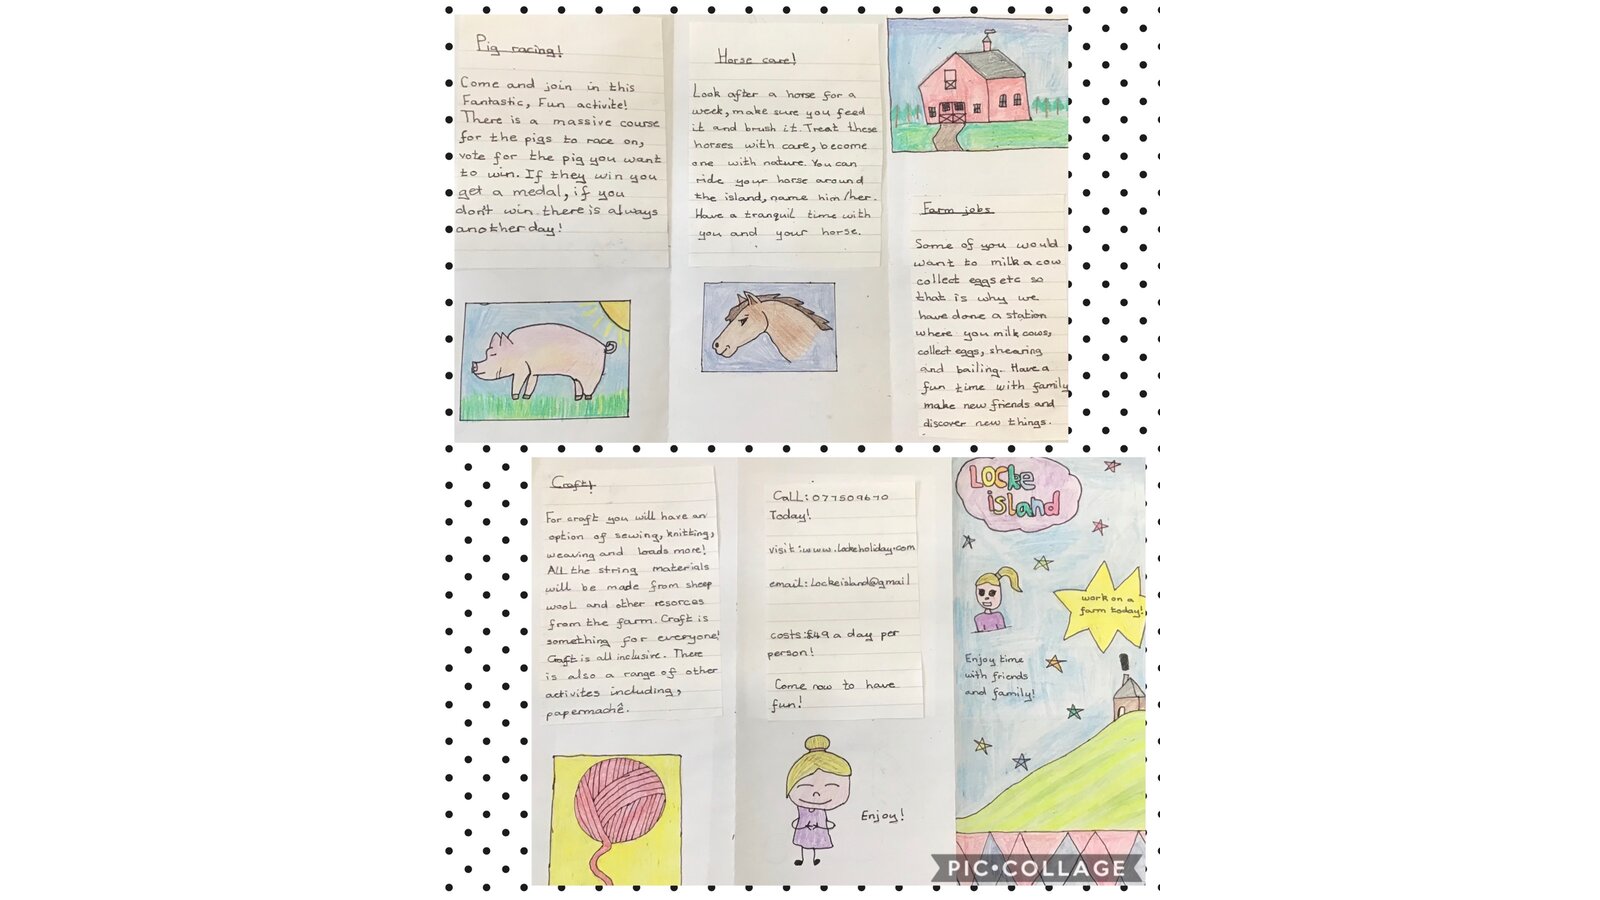 Pig racing!
Come and join in this
Fantastic, Fun activite!
There is a massive course
for the pigs to race on,
vote for the pig you want
to win. If they win you
get a medal, if you
don't win there is always
another day!
Horse care!
Look after a horse for a
week, make sure you feed
it and brush it. Treat these
horses with care, become
one with nature. You can
ride your horse around
the island, name him/her.
Have a tranquil time with
you and your horse.
Farm jobs
Some of you would
want to milk a cow
collect eggs etc so
that is why we
have done a station
where you milk cows,
collect eggs, shearing
and bailing. Have a
fun time with family
make new friends and
discover new things.
Craft!
For craft you will have an
option of sewing, knitting,
weaving and loads more!
All the string materials
will be made from sheep
wool and other resorces
from the farm. Craft is
something for everyone!
Craft is all inclusive. There
is also a range of other
activites including,
papermachê.
Call: 077509670
Today!
visit: www.lockeholiday.com
email: Lockeisland@gmail
costs: £49 a day per
person!
Come now to have
fun!
Enjoy!
Locke
island
work on a
farm today!
Enjoy time
with friends
and family!
PIC•COLLAGE